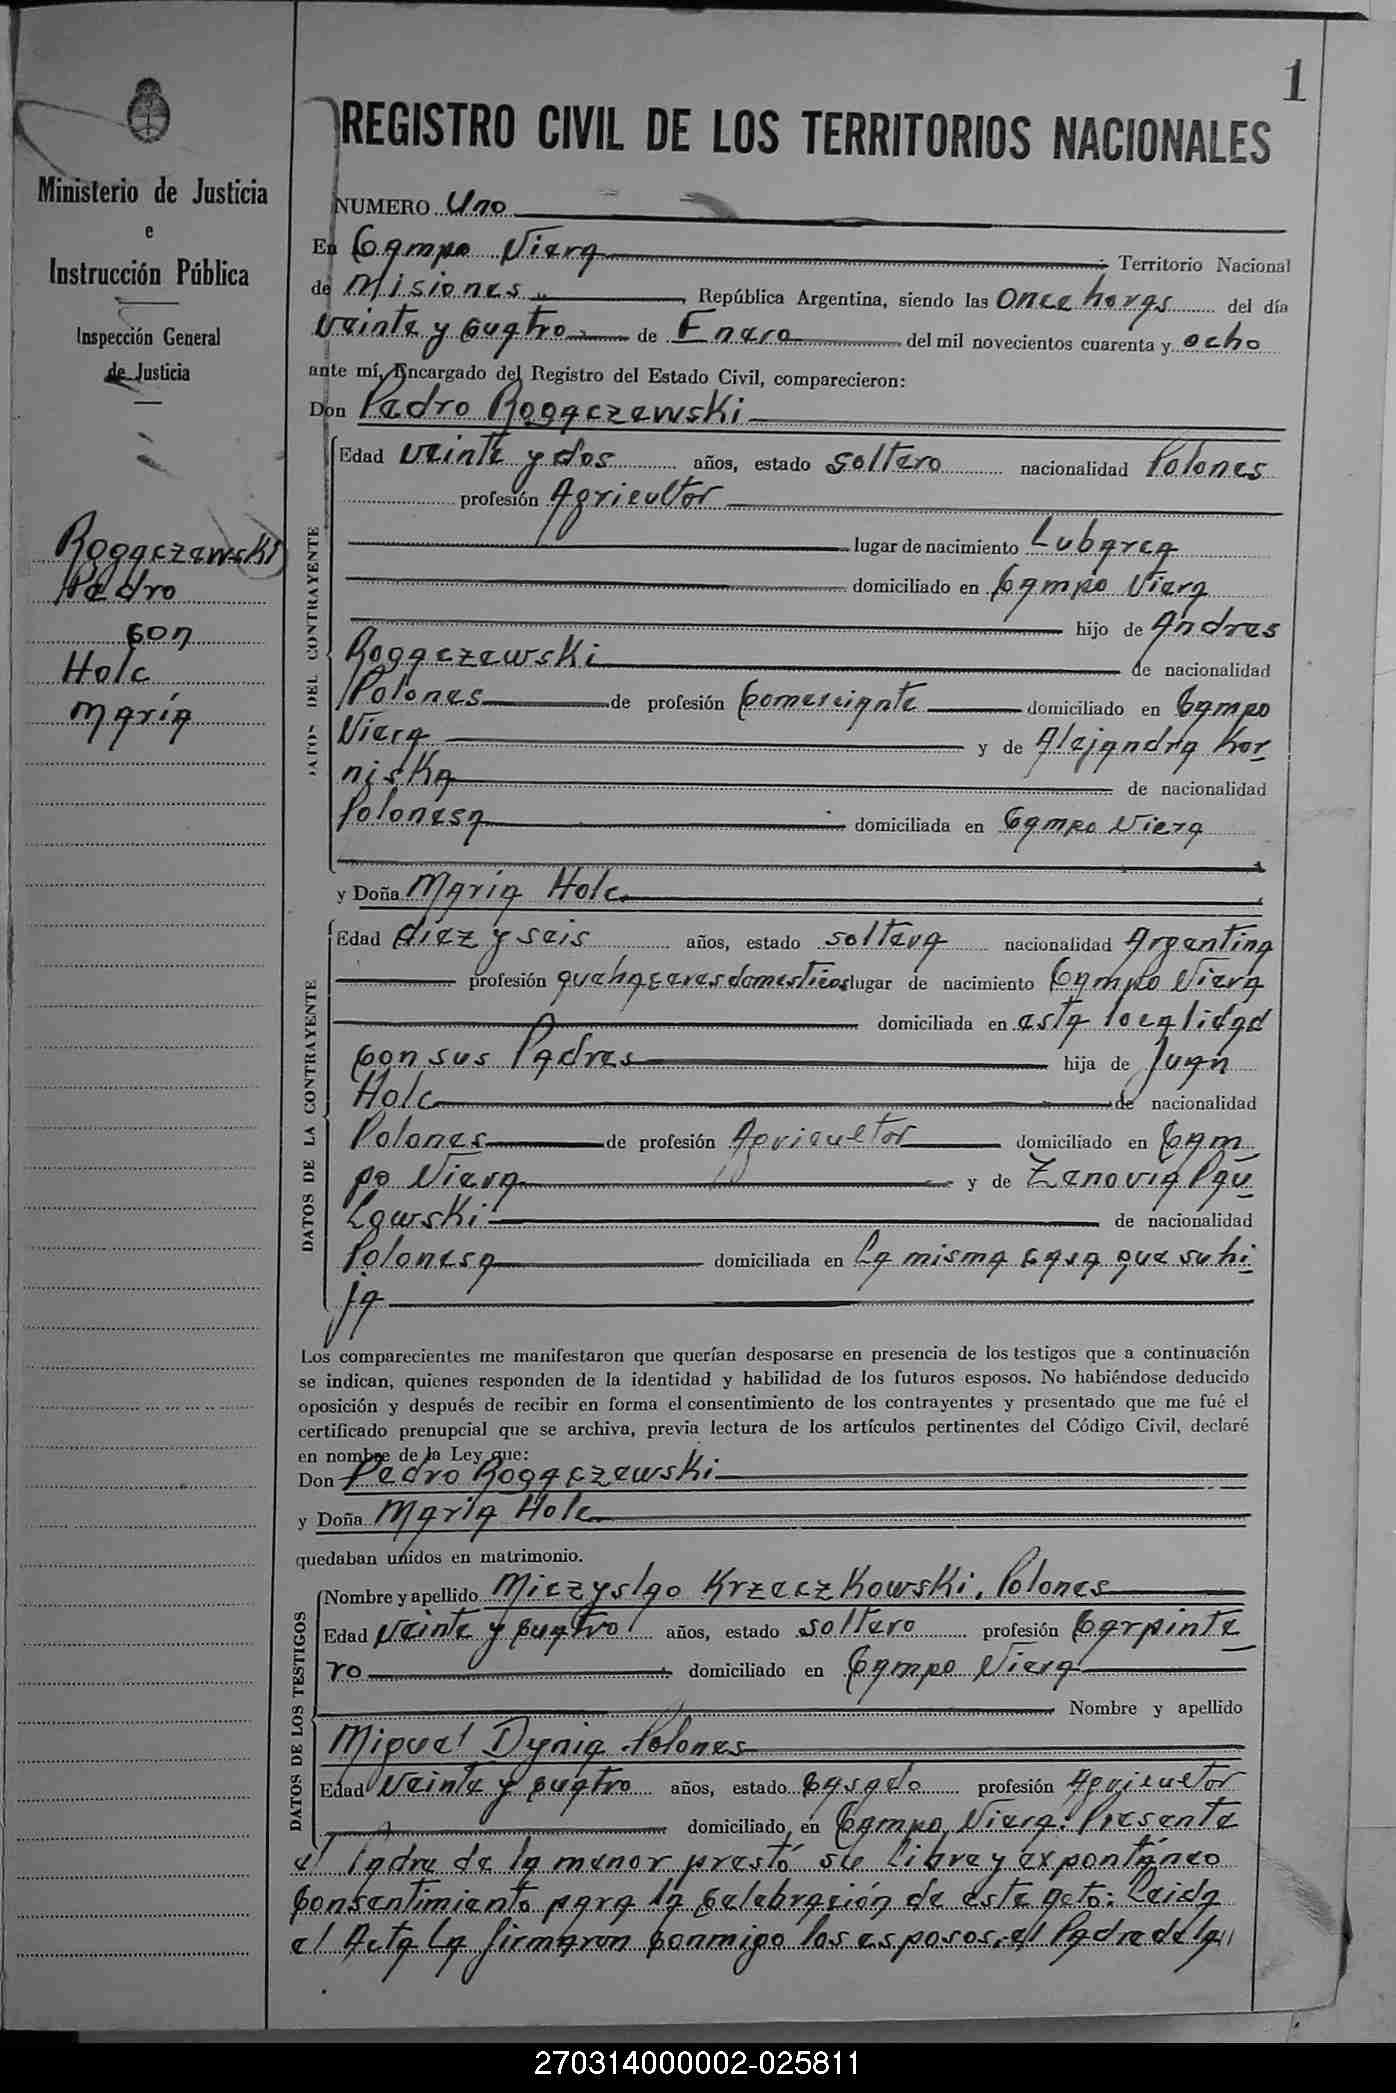 1
Ministerio de Justicia
e
Instrucción Pública
Inspección General
de Justicia
Rogaczewski
Pedro
con
Holc
María
REGISTRO CIVIL DE LOS TERRITORIOS NACIONALES
NUMERO Uno
En Campo Viera Territorio Nacional
de Misiones República Argentina, siendo las Once horas del día
veinte y cuatro de Enero del mil novecientos cuarenta y ocho
ante mí, Encargado del Registro del Estado Civil, comparecieron:
Don Pedro Rogaczewski
DATOS DEL CONTRAYENTE
Edad veinte y dos años, estado soltero nacionalidad Polones
profesión Agricultor
lugar de nacimiento Lubarca
domiciliado en Campo Viera
hijo de Andres
Rogaczewski de nacionalidad
Polones de profesión Comerciante domiciliado en Campo
Viera y de Alejandra Kor
niska de nacionalidad
Polonesa domiciliada en Campo Viera
y Doña María Holc
DATOS DE LA CONTRAYENTE
Edad diez y seis años, estado soltera nacionalidad Argentina
profesión quehaceres domesticos lugar de nacimiento Campo Viera
domiciliada en esta localidad
con sus Padres hija de Juan
Holc de nacionalidad
Polones de profesión Agricultor domiciliado en Cam
po Viera y de Zenovia Pau
Lowski de nacionalidad
Polonesa domiciliada en La misma casa que su hi
ja
Los comparecientes me manifestaron que querían desposarse en presencia de los testigos que a continuación
se indican, quienes responden de la identidad y habilidad de los futuros esposos. No habiéndose deducido
oposición y después de recibir en forma el consentimiento de los contrayentes y presentado que me fué el
certificado prenupcial que se archiva, previa lectura de los artículos pertinentes del Código Civil, declaré
en nombre de la Ley que:
Don Pedro Rogaczewski
y Doña María Holc
quedaban unidos en matrimonio.
DATOS DE LOS TESTIGOS
Nombre y apellido Miezyslao Krzeczkowski, Polones
Edad veinte y cuatro años, estado soltero profesión Carpinte
ro domiciliado en Campo Viera
Nombre y apellido
Miguel Dynia Polones
Edad veinte y cuatro años, estado casado profesión Agricultor
domiciliado en Campo Viera. Presente
el Padre de la menor prestó su libre y expontáneo
consentimiento para la celebración de este acto: Leida
el Acta La firmaron conmigo los esposos, el Padre de la
270314000002-025811